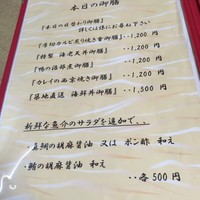 本日の御膳
『本日の日替わり御膳』
詳しくは係にお尋ね下さい
『厚切カルビ炙り焼き重御膳』‥1,200円
『特製 海老天丼御膳』‥1,200円
『鴨の治部煮御膳』‥1,200円
『カレイの西京焼き御膳』‥1,200円
『築地直送 海鮮丼御膳』‥1,500円
新鮮な魚介のサラダを追加で‥
・真鯛の胡麻醤油 又は ポン酢 和え
・鮪の胡麻醤油 和え
‥各500円